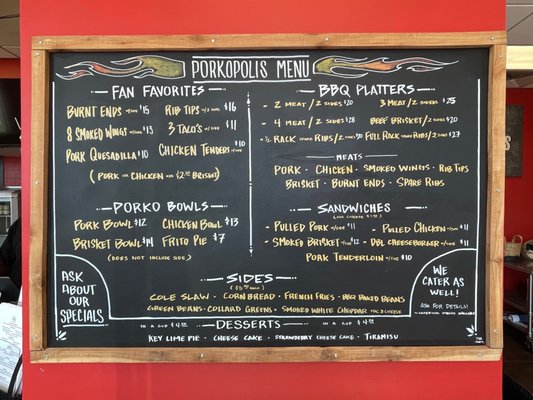 PORKOPOLIS MENU
FAN FAVORITES
BURNT ENDS $15 RIB TIPS $16
8 SMOKED WINGS $13 3 TACO'S $11
PORK QUESADILLA $10 CHICKEN TENDERS $10
(PORK OR CHICKEN BRISKET)
PORKO BOWLS
PORK BOWL $12 CHICKEN BOWL $13
BRISKET BOWL $14 FRITO PIE $7
(DOES NOT INCLUDE SIDE)
BBQ PLATTERS
- 2 MEAT/2 SIDES $20 3 MEAT/2 SIDES $25
- 4 MEAT/2 SIDES $28 BEEF BRISKET/2 SIDES $20
- ½ RACK RIBS/2 SIDES FULL RACK RIBS/2 SIDES $27
MEATS
PORK · CHICKEN · SMOKED WINGS · RIB TIPS
BRISKET · BURNT ENDS · SPARE RIBS
SANDWICHES
- PULLED PORK $11 - PULLED CHICKEN $11
- SMOKED BRISKET $12 - DBL CHEESEBURGER $11
PORK TENDERLOIN $10
SIDES
COLE SLAW · CORN BREAD · FRENCH FRIES · BBQ BAKED BEANS
GREEN BEANS · COLLARD GREENS · SMOKED WHITE CHEDDAR MAC & CHEESE
ASK
ABOUT
OUR
SPECIALS
WE
CATER AS
WELL!
ASK FOR DETAILS!
DESSERTS
IN A CUP IN A CUP
KEY LIME PIE · CHEESE CAKE · STRAWBERRY CHEESE CAKE · TIRAMISU